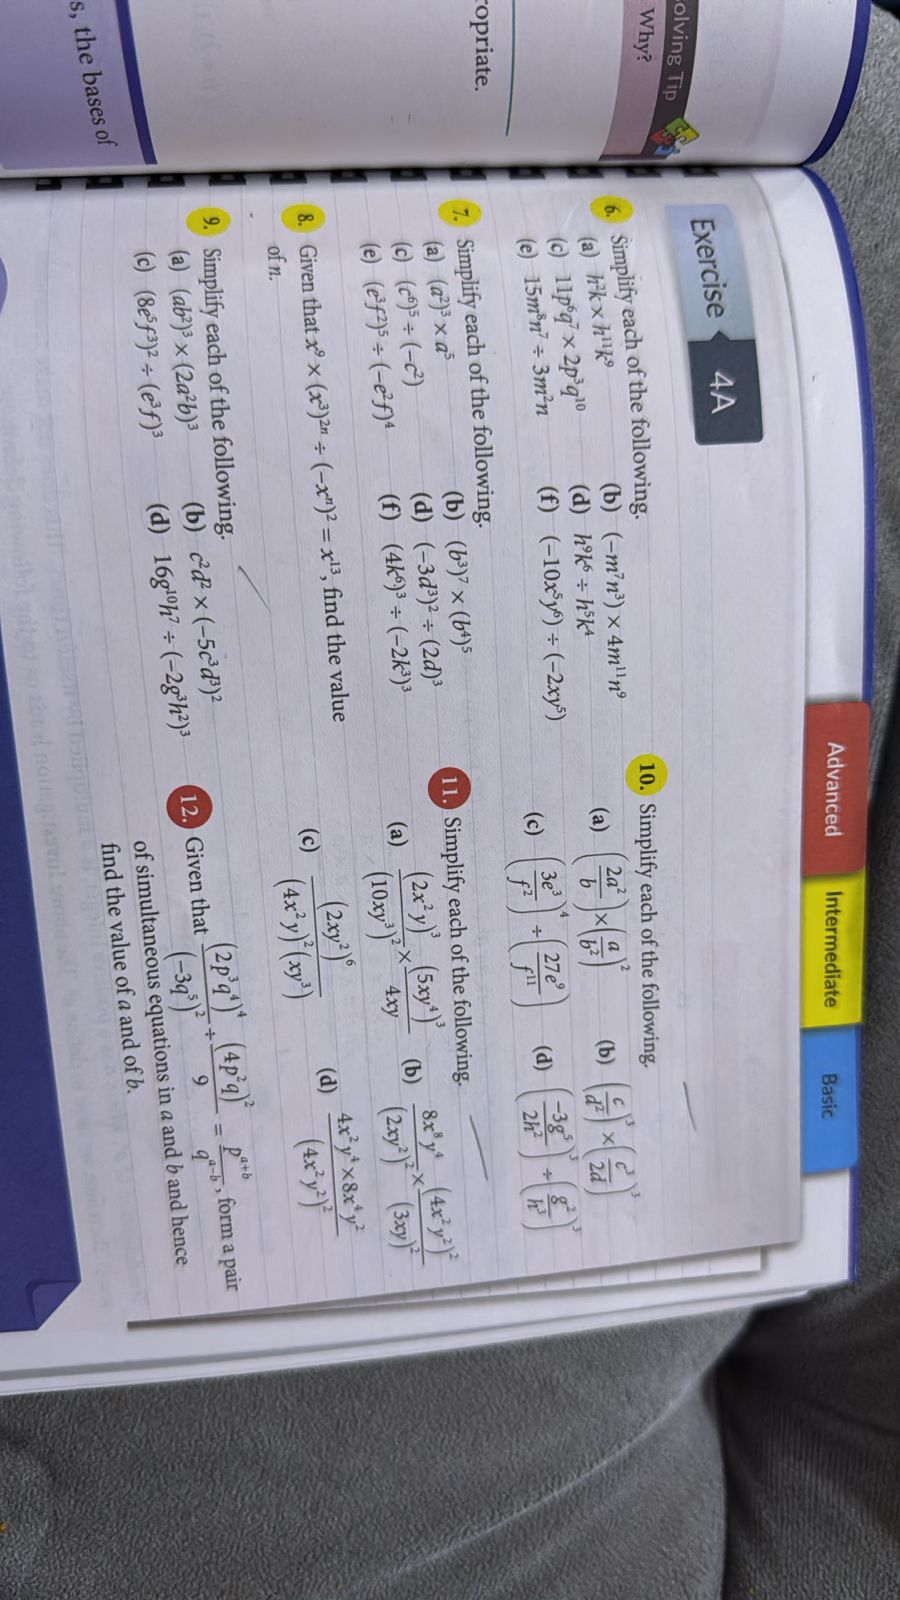 olving Tip
Why?
ropriate.
s, the bases of
Advanced
Intermediate
Basic
Exercise 4A
6. Simplify each of the following.
(a) h²k × h¹¹k⁹ (b) (−m⁷n³) × 4m¹¹n⁹
(c) 11p⁶q⁷ × 2p³q¹⁰ (d) h⁹k⁶ ÷ h⁵k⁴
(e) 15m⁸n⁷ ÷ 3m²n (f) (−10x⁵y⁶) ÷ (−2xy⁵)
7. Simplify each of the following.
(a) (a²)³ × a⁵ (b) (b³)⁷ × (b⁴)⁵
(c) (c⁶)⁵ ÷ (−c²) (d) (−3d³)² ÷ (2d)³
(e) (e³f²)⁵ ÷ (−e²f)⁴ (f) (4k⁶)³ ÷ (−2k³)³
8. Given that x⁹ × (x³)²ⁿ ÷ (−xⁿ)² = x¹³, find the value
of n.
9. Simplify each of the following.
(a) (ab²)³ × (2a²b)³ (b) c²d² × (−5c³d³)²
(c) (8e⁵f³)² ÷ (e³f)³ (d) 16g¹⁰h⁷ ÷ (−2g³h²)³
10. Simplify each of the following.
(a) (2a²/b) × (a/b²)² (b) (c/d²)³ × (c³/2d)³
(c) (3e³/f²)⁴ ÷ (27e⁹/f¹¹) (d) (−3g⁵/2h²)³ ÷ (g²/h³)³
11. Simplify each of the following.
(a) (2x²y)³/(10xy³)² × (5xy⁴)³/4xy (b) 8x⁸y⁴/(2xy²)² × (4x²y²)²/(3xy)²
(c) (2xy²)⁶/(4x²y)²(xy³) (d) 4x²y⁴ × 8x⁴y²/(4x²y²)²
12. Given that (2p³q⁴)⁴/(−3q⁵)² ÷ (4p²q)²/9 = pᵃ⁺ᵇ/qᵃ⁻ᵇ, form a pair
of simultaneous equations in a and b and hence
find the value of a and of b.